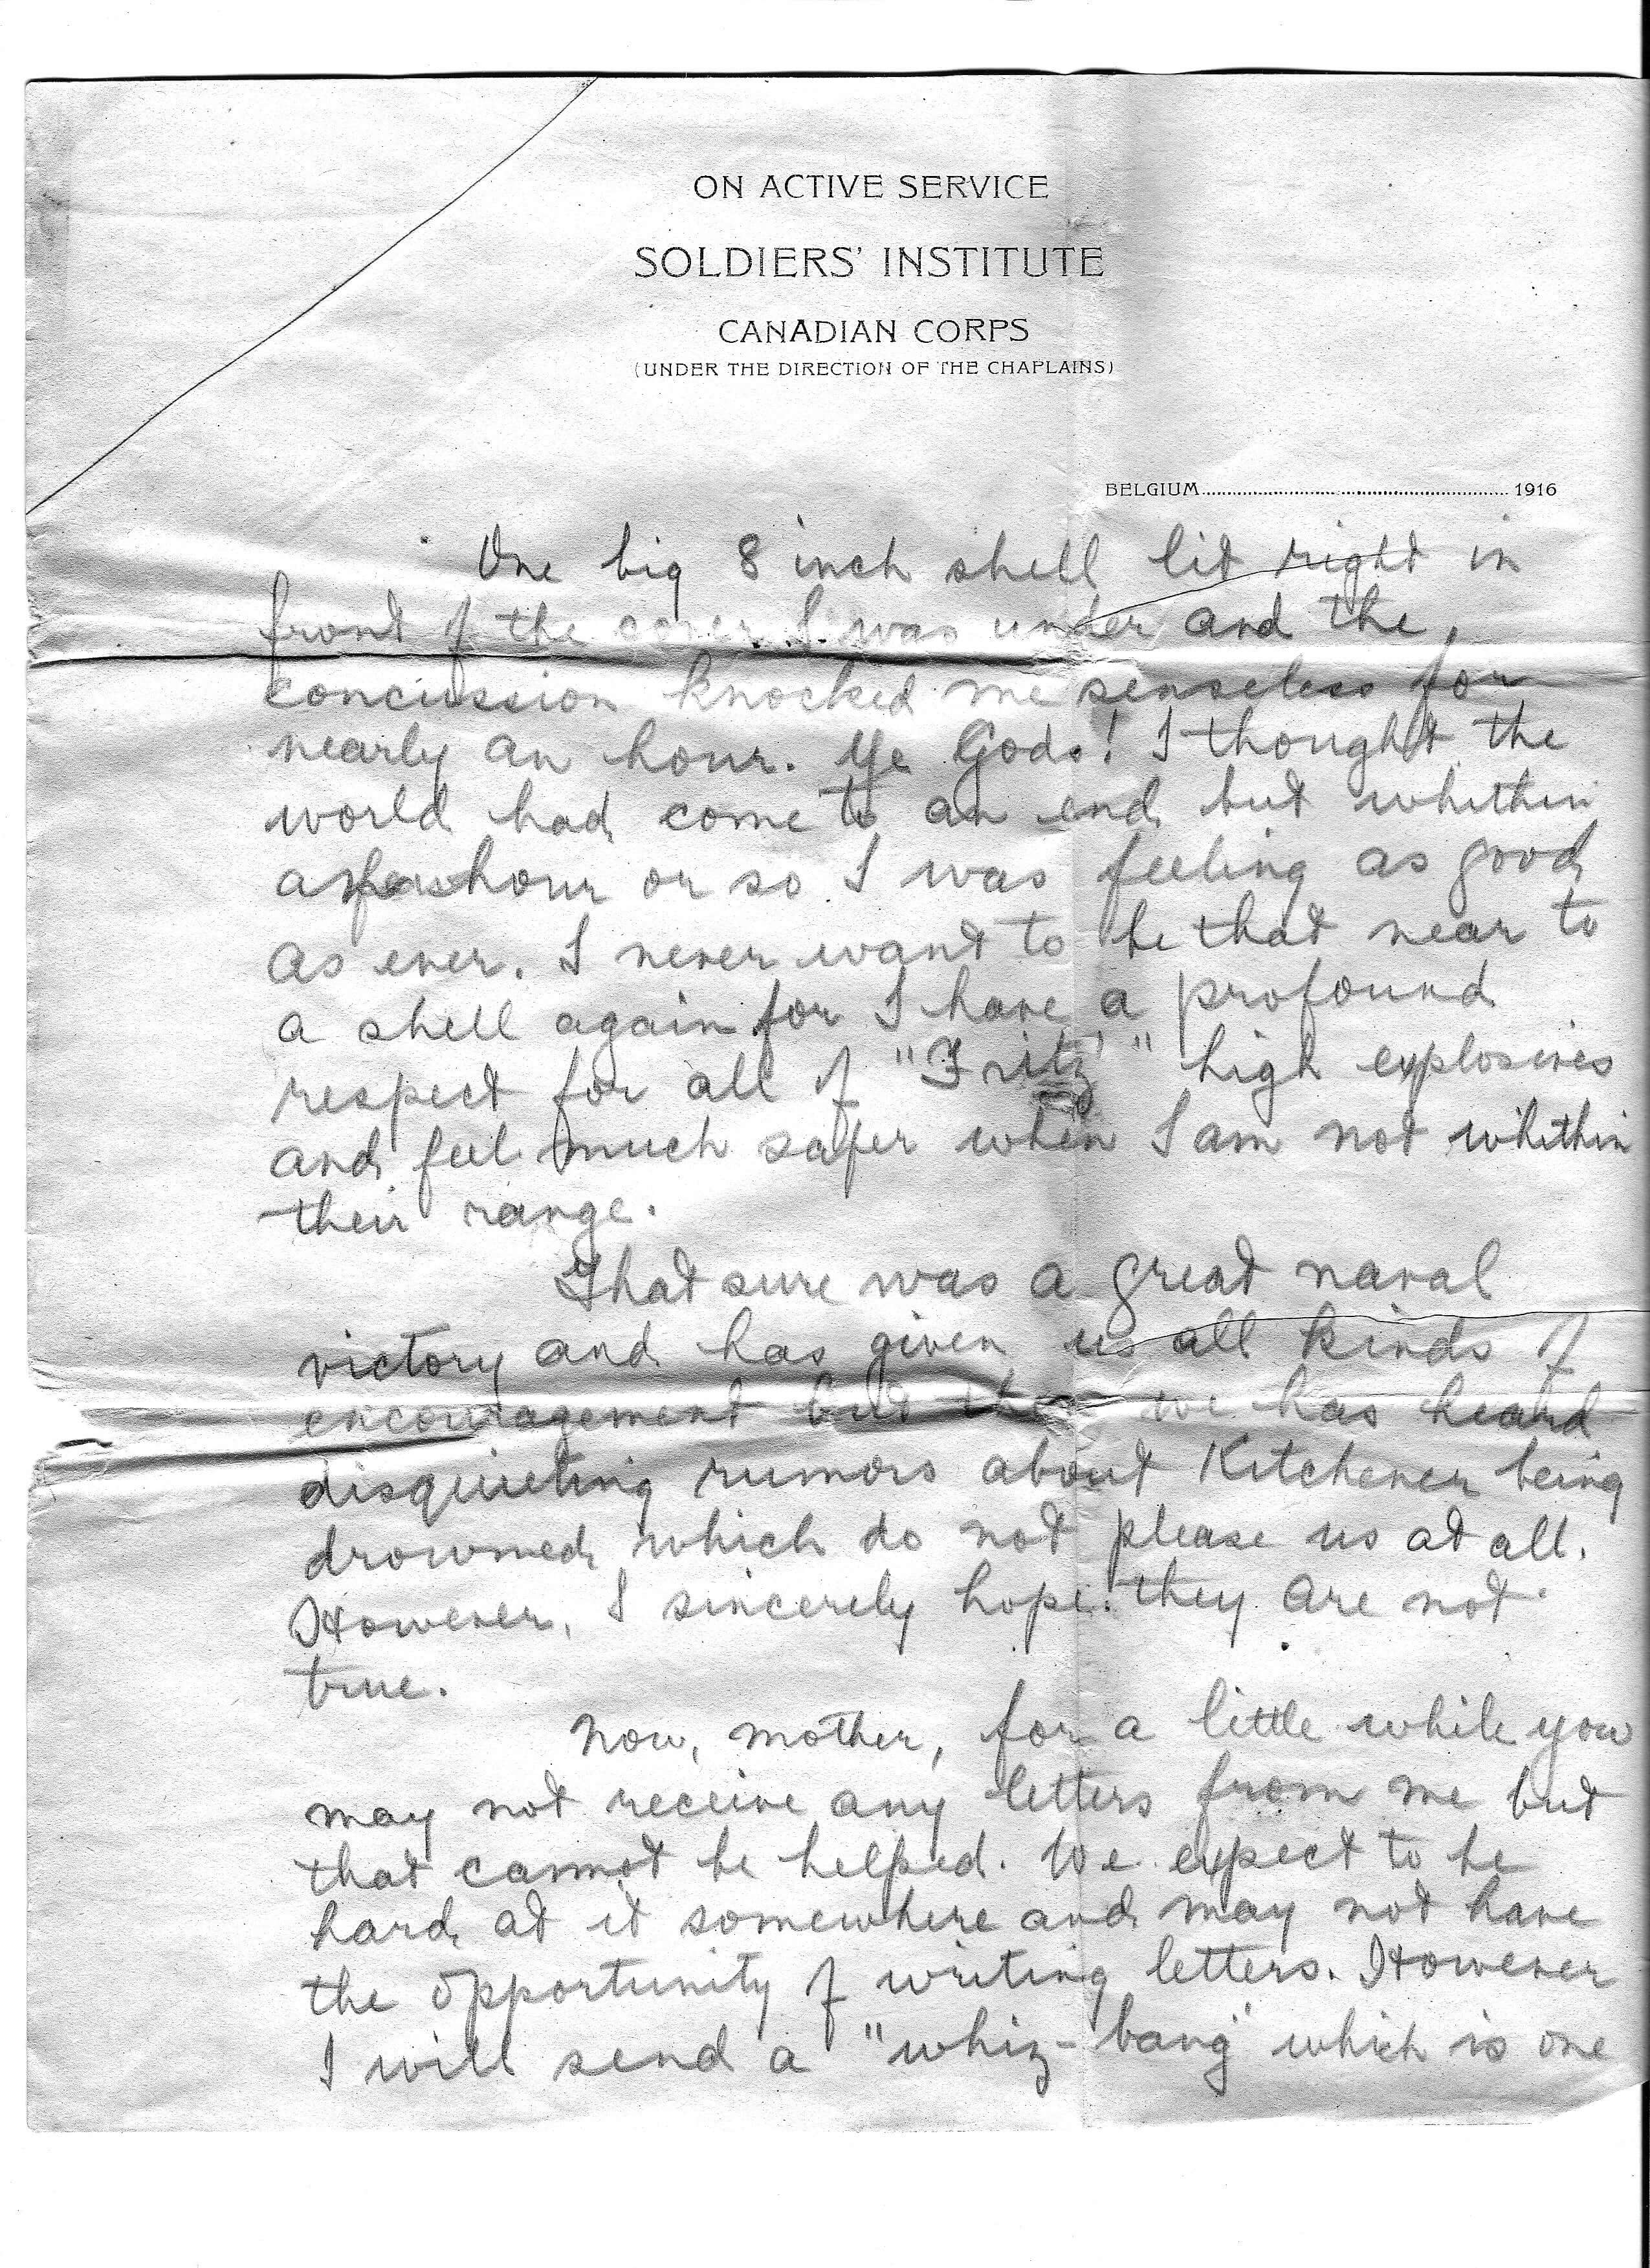 ON ACTIVE SERVICE
SOLDIERS' INSTITUTE
CANADIAN CORPS
(UNDER THE DIRECTION OF THE CHAPLAINS)
BELGIUM.................................................1916
One big 8 inch shell lit right in
front of the cover I was under and the
concussion knocked me senseless for
nearly an hour. Ye Gods! I thought the
world had come to an end but whithin
a hour or so I was feeling as good
as ever. I never want to be that near to
a shell again for I have a profound
respect for all of "Fritz'" high explosives
and feel much safer when I am not whithin
their range.
That sure was a great naval
victory and has given us all kinds of
encouragement but then we has heard
disquieting rumors about Kitchener being
drowned which do not please us at all.
However, I sincerely hope they are not
true.
Now, mother, for a little while you
may not receive any letters from me but
that cannot be helped. We expect to be
hard at it somewhere and may not have
the opportunity of writing letters. However
I will send a "whiz-bang" which is one